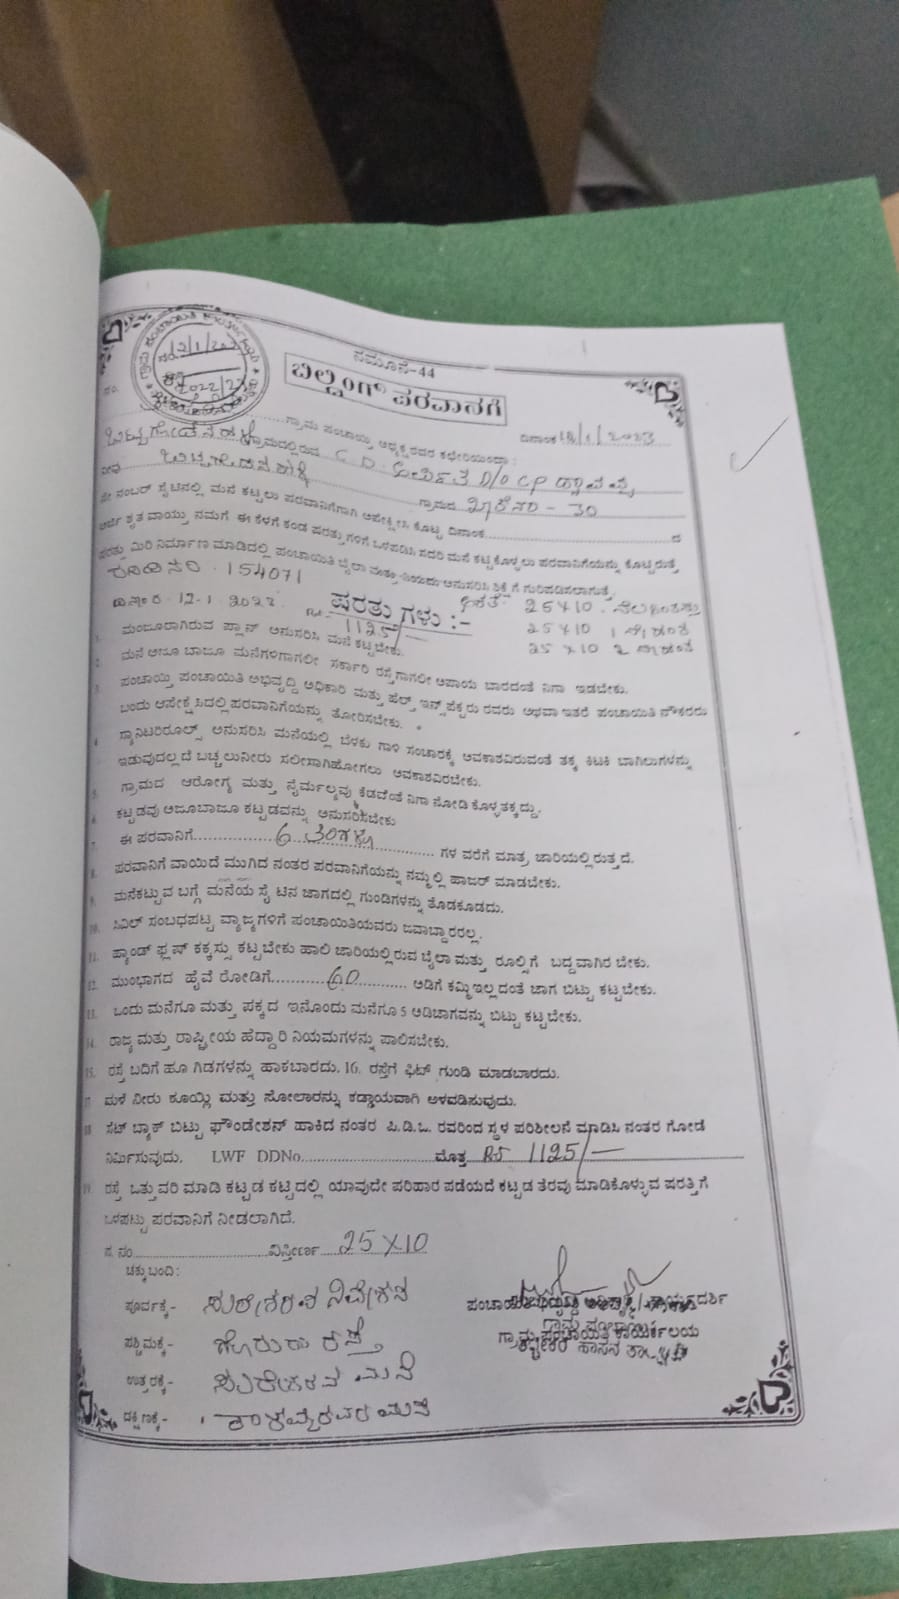 ನಮೂನೆ-44
ಬಿಲ್ಡಿಂಗ್ ಪರವಾನಗೆ
ನಂ.
12/1/
2022/23
ಗ್ರಾಮ ಪಂಚಾಯ್ತಿ ಅಧ್ಯಕ್ಷರವರ ಕಛೇರಿಯಿಂದಾ : ದಿನಾಂಕ 12/1/2023
ಗ್ರಾಮದಲ್ಲಿರುವ C D D/o CP
ನೀವು ಗ್ರಾಮದ - 30
ನೇ ನಂಬರ್ ಸೈಟಿನಲ್ಲಿ ಮನೆ ಕಟ್ಟಲು ಪರವಾನಿಗೆಗಾಗಿ ಅಪೇಕ್ಷಿಸಿ ಕೊಟ್ಟ ದಿನಾಂಕ ದ
ಅರ್ಜಿ ಕೃತವಾಯ್ತು ನಮಗೆ ಈ ಕೆಳಗೆ ಕಂಡ ಷರತ್ತುಗಳಿಗೆ ಒಳಪಡಿಸಿ ಸದರಿ ಮನೆ ಕಟ್ಟಕೊಳ್ಳಲು ಪರವಾನಿಗೆಯನ್ನು ಕೊಟ್ಟರುತ್ತೆ
ಷರತ್ತು ಮಿರಿ ನಿರ್ಮಾಣ ಮಾಡಿದಲ್ಲಿ ಪಂಚಾಯಿತಿ ಬೈಲಾ ಮತ್ತು ನಿಯಮ ಅನುಸರಿಸಿ ಶಿಕ್ಷೆ ಗೆ ಗುರಿಪಡಿಸಲಾಗುತ್ತೆ
154071
12-1 2023. ಷರತ್ತುಗಳು :- 25x10
1125/- 25x10
1. ಮಂಜೂರಾಗಿರುವ ಪ್ಲಾನ್ ಅನುಸರಿಸಿ ಮನೆ ಕಟ್ಟಬೇಕು. 25x10 2
2. ಮನೆ ಅಜೂ ಬಾಜೂ ಮನೆಗಳಿಗಾಗಲೀ ಸರ್ಕಾರಿ ರಸ್ತೆಗಾಗಲೀ ಅಪಾಯ ಬಾರದಂತೆ ನಿಗಾ ಇಡಬೇಕು.
3. ಪಂಚಾಯ್ತಿ ಪಂಚಾಯಿತಿ ಅಭಿವೃದ್ಧಿ ಅಧಿಕಾರಿ ಮತ್ತು ಹೆಲ್ತ್ ಇನ್ಸ್‌ಪೆಕ್ಟರು ರವರು ಅಥವಾ ಇತರೆ ಪಂಚಾಯಿತಿ ನೌಕರರು
ಬಂದು ಆಪೇಕ್ಷಿಸಿದಲ್ಲಿ ಪರವಾನಿಗೆಯನ್ನು ತೋರಿಸಬೇಕು.
4. ಸ್ಯಾನಿಟರಿರೂಲ್ಸ್ ಅನುಸರಿಸಿ ಮನೆಯಲ್ಲಿ ಬೆಳಕು ಗಾಳಿ ಸಂಚಾರಕ್ಕೆ ಅವಕಾಶವಿರುವಂತೆ ತಕ್ಕ ಕಿಟಕಿ ಬಾಗಿಲುಗಳನ್ನು
ಇಡುವುದಲ್ಲದೆ ಬಚ್ಚಲುನೀರು ಸಲೀಸಾಗಿಹೋಗಲು ಅವಕಾಶವಿರಬೇಕು.
5. ಗ್ರಾಮದ ಆರೋಗ್ಯ ಮತ್ತು ನೈರ್ಮಲ್ಯವು ಕೆಡದಂತೆ ನಿಗಾ ನೋಡಿ ಕೊಳ್ಳತಕ್ಕದ್ದು.
6. ಕಟ್ಟಡವು ಅಜೂಬಾಜೂ ಕಟ್ಟಡವನ್ನು ಅನುಸರಿಸಬೇಕು
7. ಈ ಪರವಾನಿಗೆ 6 ತಿಂಗಳು ಗಳ ವರೆಗೆ ಮಾತ್ರ ಜಾರಿಯಲ್ಲಿರುತ್ತದೆ.
8. ಪರವಾನಿಗೆ ವಾಯಿದೆ ಮುಗಿದ ನಂತರ ಪರವಾನಿಗೆಯನ್ನು ನಮ್ಮಲ್ಲಿ ಹಾಜರ್ ಮಾಡಬೇಕು.
9. ಮನೆಕಟ್ಟುವ ಬಗ್ಗೆ ಮನೆಯ ಸೈಟಿನ ಜಾಗದಲ್ಲಿ ಗುಂಡಿಗಳನ್ನು ತೊಡಕೂಡದು.
10. ಸಿವಿಲ್ ಸಂಬಧಪಟ್ಟ ವ್ಯಾಜ್ಯಗಳಿಗೆ ಪಂಚಾಯಿತಿಯವರು ಜವಾಬ್ದಾರರಲ್ಲ.
11. ಹ್ಯಾಂಡ್ ಫ್ಲಷ್ ಕಕ್ಕಸ್ಸು ಕಟ್ಟಬೇಕು ಹಾಲಿ ಜಾರಿಯಲ್ಲಿರುವ ಬೈಲಾ ಮತ್ತು ರೂಲ್ಸಿಗೆ ಬದ್ದವಾಗಿರಬೇಕು.
12. ಮುಂಭಾಗದ ಹೈವೆ ರೋಡಿಗೆ 60 ಅಡಿಗೆ ಕಮ್ಮಿ ಇಲ್ಲದಂತೆ ಜಾಗ ಬಿಟ್ಟು ಕಟ್ಟಬೇಕು.
13. ಒಂದು ಮನೆಗೂ ಮತ್ತು ಪಕ್ಕದ ಇನೊಂದು ಮನೆಗೂ 5 ಅಡಿಜಾಗವನ್ನು ಬಿಟ್ಟು ಕಟ್ಟಬೇಕು.
14. ರಾಜ್ಯ ಮತ್ತು ರಾಷ್ಟ್ರೀಯ ಹೆದ್ದಾರಿ ನಿಯಮಗಳನ್ನು ಪಾಲಿಸಬೇಕು.
15. ರಸ್ತೆ ಬದಿಗೆ ಹೂ ಗಿಡಗಳನ್ನು ಹಾಕಬಾರದು. 16. ರಸ್ತೆಗೆ ಫಿಟ್ ಗುಂಡಿ ಮಾಡಬಾರದು.
17 ಮಳೆ ನೀರು ಕೂಯ್ಲು ಮತ್ತು ಸೋಲಾರನ್ನು ಕಡ್ಡಾಯವಾಗಿ ಅಳವಡಿಸುವುದು.
18 ಸೆಟ್ ಬ್ಯಾಕ್ ಬಿಟ್ಟು ಫೌಂಡೇಶನ್ ಹಾಕಿದ ನಂತರ ಪಿ.ಡಿ.ಒ. ರವರಿಂದ ಸ್ಥಳ ಪರಿಶೀಲನೆ ಮಾಡಿಸಿ ನಂತರ ಗೋಡೆ
ನಿರ್ಮಿಸುವುದು. LWF DDNo. ಮೊತ್ತ Rs 1125/-
19. ರಸ್ತೆ ಒತ್ತುವರಿ ಮಾಡಿ ಕಟ್ಟಡ ಕಟ್ಟಿದಲ್ಲಿ ಯಾವುದೇ ಪರಿಹಾರ ಪಡೆಯದೆ ಕಟ್ಟಡ ತೆರವು ಮಾಡಿಕೊಳ್ಳುವ ಷರತ್ತಿಗೆ
ಒಳಪಟ್ಟು ಪರವಾನಿಗೆ ನೀಡಲಾಗಿದೆ.
ಸ. ನಂ ವಿಸ್ತೀರ್ಣ 25X10
ಚಕ್ಕುಬಂದಿ :
ಪೂರ್ವಕ್ಕೆ- ನಿವೇಶನ
ಪಶ್ಚಿಮಕ್ಕೆ- ರಸ್ತೆ
ಗ್ರಾಮ ಪಂಚಾಯಿತಿ ಕಾರ್ಯಾಲಯ
ಉತ್ತರಕ್ಕೆ- ಮನೆ
ದಕ್ಷಿಣಕ್ಕೆ- ಮನೆ